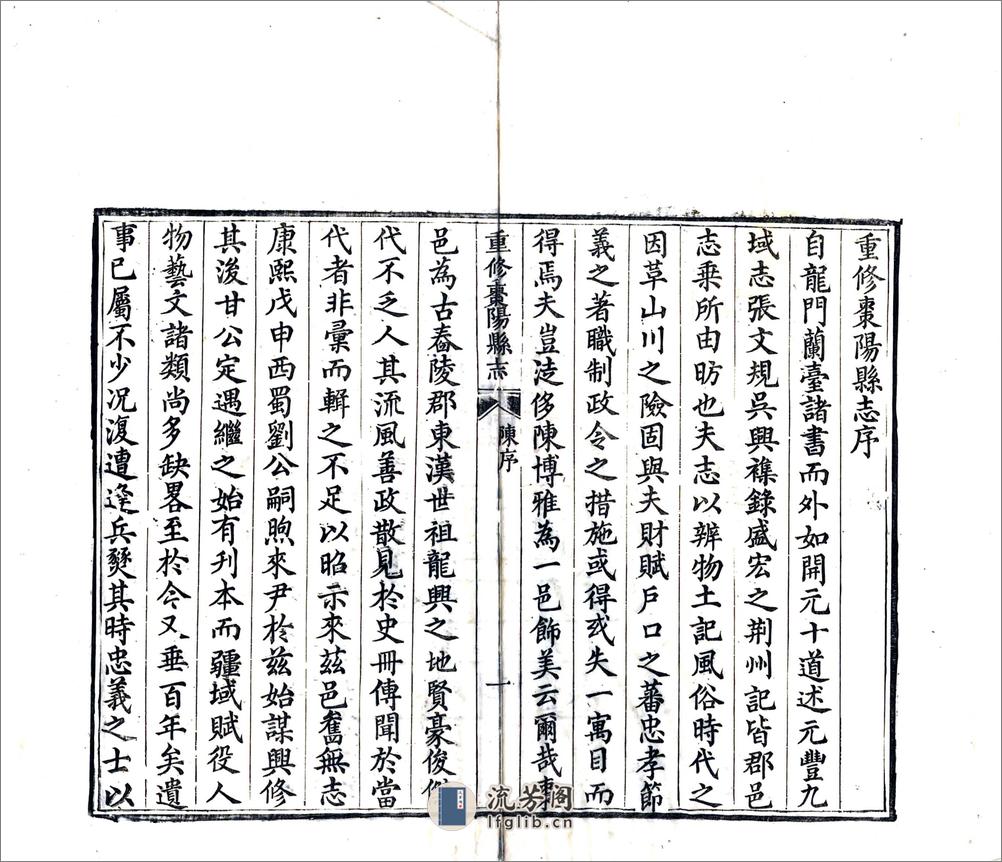 重修棗陽縣志序
自龍門蘭臺諸書而外如開元十道述元豐九
域志張文規吳興襍錄盛宏之荆州記皆郡邑
志乘所由昉也夫志以辨物土記風俗時代之
因革山川之險固與夫財賦戶口之蕃忠孝節
義之著職制政令之措施或得或失一寓目而
得焉夫豈徒侈陳博雅為一邑飾美云爾哉棗
重修棗陽縣志
陳序
一
邑為古舂陵郡東漢世祖龍興之地賢豪俊傑
代不乏人其流風善政散見於史冊傳聞於當
代者非彙而輯之不足以昭示來茲邑舊無志
康熙戊申西蜀劉公嗣煦來尹於茲始謀興修
其後甘公定遇繼之始有刊本而疆域賦役人
物藝文諸類尚多缺畧至於今又垂百年矣遺
事已屬不少況復遭逢兵燹其時忠義之士以
流芳阁
lfglib.cn